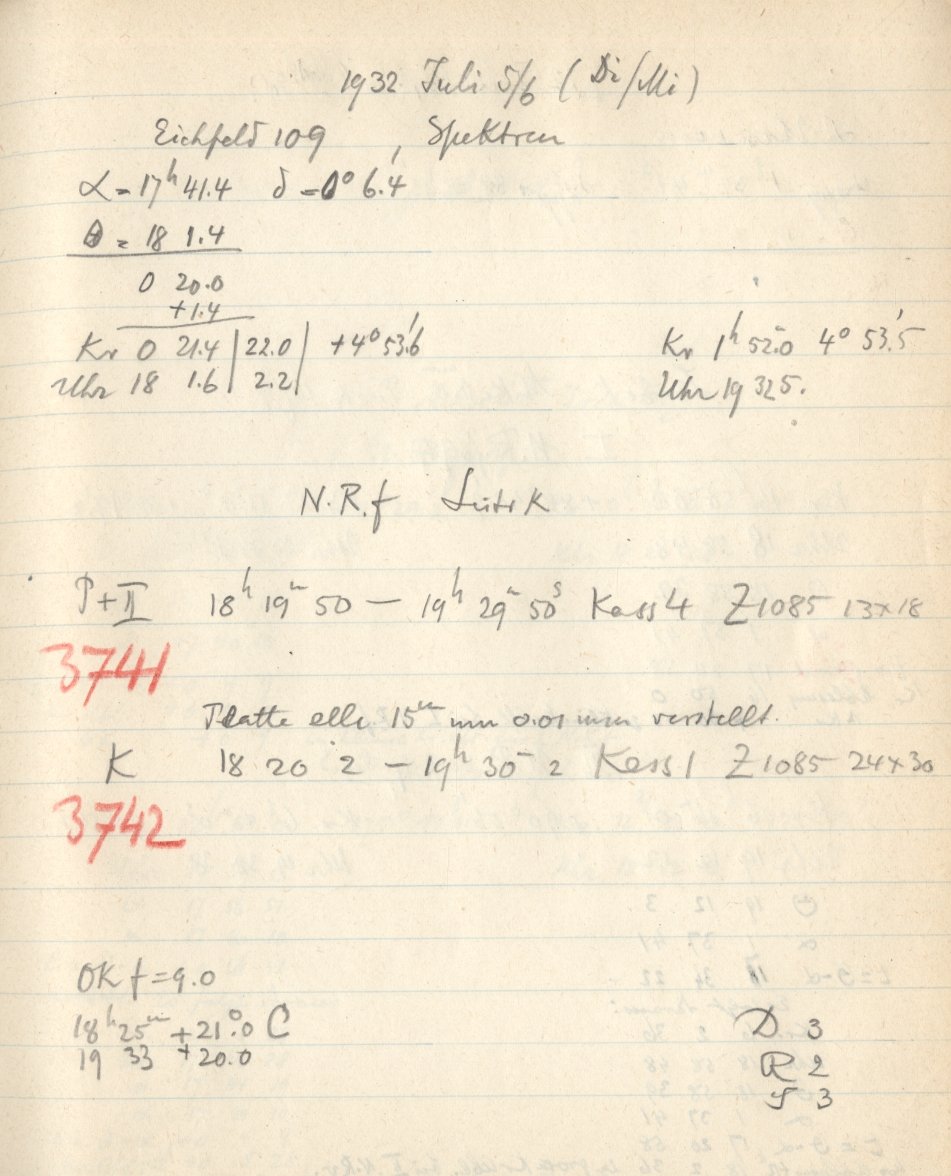 1932 Juli 5/6 (Di/Mi)
Eichfeld 109, Spektren
α = 17h 41.4 δ = 0° 6.'4
θ = 18 1.4
0 20.0
+1.4
Kr 0 21.4 | 22.0 | +4° 53.'6 Kr 1h 52.0 4° 53.'5
Uhr 18 1.6 | 2.2 | Uhr 19 32 5.
N.R.f Leitr K
P+II 18h 19m 50 — 19h 29m 50s Kass 4 Z 1085 13×18
3741
Platte alle 15m um 0.01 mm verstellt.
K 18 20 2 — 19h 30m 2 Kass 1 Z 1085 24×30
3742
OK f = 9.0
18h 25m +21.°0 C
19 33 +20.0
D 3
R 2
S 3